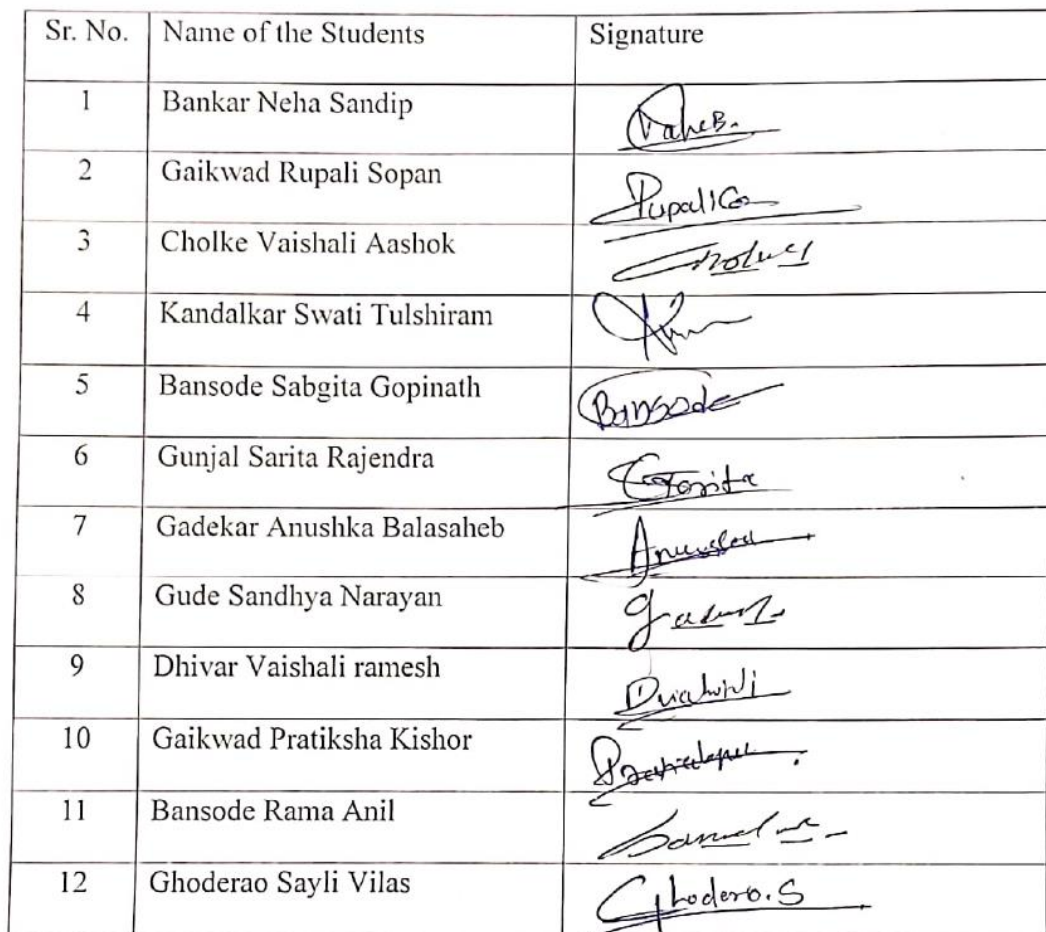 Sr. No. Name of the Students Signature
1 Bankar Neha Sandip
2 Gaikwad Rupali Sopan RupaliG
3 Cholke Vaishali Aashok
4 Kandalkar Swati Tulshiram
5 Bansode Sabgita Gopinath Bansode
6 Gunjal Sarita Rajendra
7 Gadekar Anushka Balasaheb
8 Gude Sandhya Narayan
9 Dhivar Vaishali ramesh
10 Gaikwad Pratiksha Kishor
11 Bansode Rama Anil
12 Ghoderao Sayli Vilas Ghodero.S